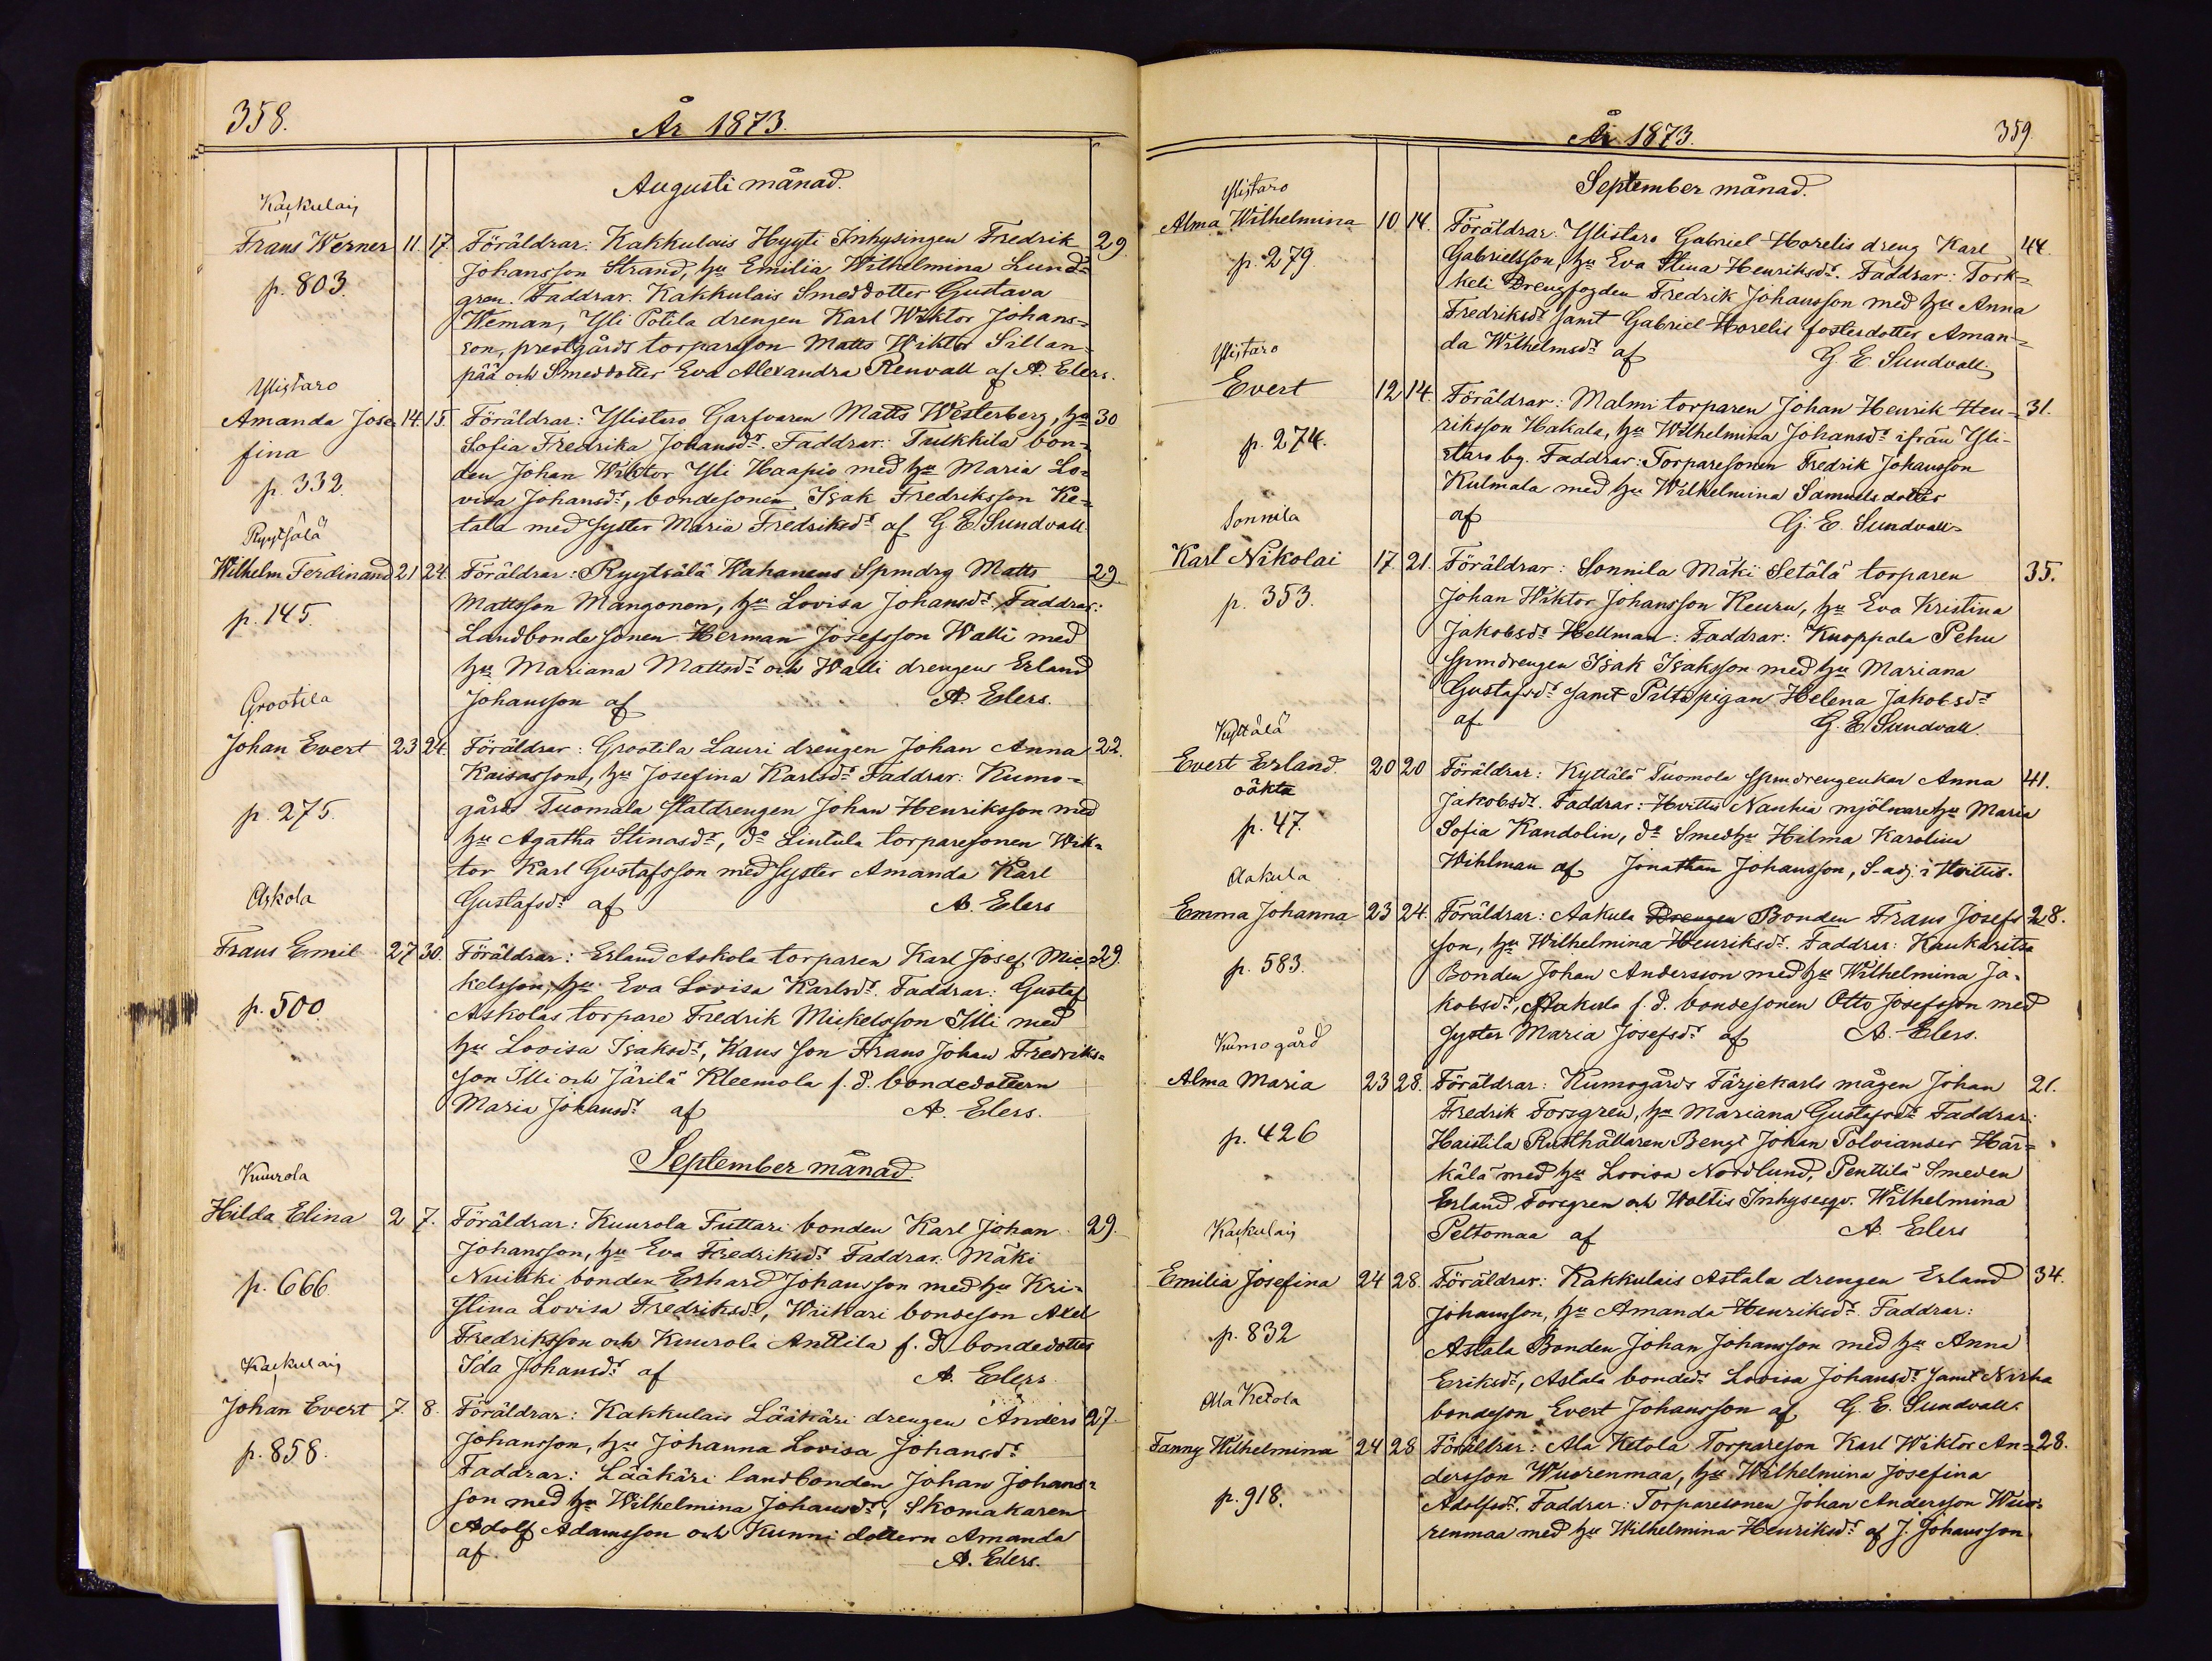 358.
År 1873.
Augusti månad.
Kakkulais
Frans Werner 11. 17. Föräldrar: Kakkulais Hyyti Inhysingen Fredrik 29.
Johansson Strand, hu Emilia Wilhelmina Lund=
p. 803. gren. Faddrar. Kakkulais Smeddotter Gustava
Weman, Yli Potila drengen Karl Wiktor Johans=
son, prestgårds torpareson Matts Wiktor Sillan=
pää och Smeddotter Eva Alexandra Renvall af A. Elers.
Ylistaro
Amanda Jose 14. 15. Föräldrar: Ylistaro Garfvaren Matts Westerberg, hu 30
fina Sofia Fredrika Johansdr. Faddrar: Tulkkila bon=
den Johan Wiktor Yli Haapio med hu Maria Lo=
p. 332. visa Johansdr, bondesonen Isak Fredriksson Ke=
tala med syster Maria Fredriksdr af G E Sundvall
Ryytsälä
Wilhelm Ferdinand 21 24. Föräldrar: Ryytsälä Wahanens Spmdrg Matts 29.
Mattsson Mangonen, hu Lovisa Johansdr, Faddrar:
p. 145. Landbondesonen Herman Josefsson Walli med
hu Mariana Mattsdr och Walli drengen Erland
Johansson af A. Elers.
Grootila
Johan Evert 23 24. Föräldrar: Grootila Lauri drengen Johan Anna 22.
Kaisasson, hu Josefina Karlsdr Faddrar: Kumo=
gårds Tuomala statdrengen Johan Henriksson med
p. 275. hu Agatha Stinasdr, do Lintula torparesonen Wik=
tor Karl Gustafsson med syster Amanda Karl
Gustafsdr af A. Elers
Askola
Frans Emil 27 30. Föräldrar: Erland Askola torparen Karl Josef Mic= 29.
kelsson, hu Eva Lovisa Karlsdr. Faddrar: Gustaf
p. 500. Askolas torpare Fredrik Mickelsson Illi med
hu Lovisa Isaksdr, Hans son Frans Johan Fredriks=
son Illi och Järilä Kleemola f. d. bondedottern
Maria Johansdr af A. Elers.
September månad.
Kuurola
Hilda Elina 2 7. Föräldrar: Kuurola Futtari bonden Karl Johan 29.
Johansson, hu Eva Fredriksdr Faddrar: Mäki
p. 666. Nuikki bonden Erhard Johansson med hu Kri=
stina Lovisa Fredriksdr, Wiikari bondeson Axel
Fredriksson och Kuurola Anttila f. d. bondedotter
Ida Johansdr af A. Elers.
Kakkulais
Johan Evert 7. 8. Föräldrar: Kakkulais Lääkäri drengen Anders 27.
Johansson, hu Johanna Lovisa Johansdr
p. 858. Faddrar: Lääkäri landbonden Johan Johans=
son med hu Wilhelmina Johansdr, Skomakaren
Adolf Adamsson och Kunni dottern Amanda
af. A. Elers.
År 1873. 359.
September månad.
Ylistaro
Alma Wilhelmina 10 14. Föräldrar: Ylistaro Gabriel Horelis dreng Karl 44.
Gabrielsson, hu Eva Stina Henriksdr. Faddrar: Tork=
p. 279 keli Drengfogden Fredrik Johansson med hu Anna
Fredriksdr samt Gabriel Horelis fosterdotter Aman=
da Wilhelmsdr af G. E. Sundvall.
Ylistaro
Evert 12 14. Föräldrar: Malmi torparen Johan Henrik Hen= 31.
riksson Hakala, hu Wilhelmina Johansdr ifrån Yli-
p. 274. staro by. Faddrar: Torparesonen Fredrik Johansson
Kulmala med hu Wilhelmina Samuelsdotter
af G. E. Sundvall
Sonnila
Karl Nikolai 17 21. Föräldrar: Sonnila Mäki Setälä torparen 35.
p. 353. Johan Wiktor Johansson Keuru, hu Eva Kristina
Jakobsdr Hellman: Faddrar: Knoppala Pehu
Spmdrengen Isak Isaksson med hu Mariana
Gustafsdr samt Paltspigan Helena Jakobsdr
af G. E. Sundvall.
Kyttälä
Evert Erland. 20 20 Föräldrar: Kyttälä Tuomola spmdrengenkan Anna 41.
oäkta Jakobsdr. Faddrar: Hvittis Nanhia mjölnarehu Maria
p. 47. Sofia Kandolin, do Smedhu Hilma Karolina
Wihlman af Jonathan Johansson, S-adj. i Hvittis.
Aakula
Emma Johanna 23 24. Föräldrar: Aakula Drengen Bonden Frans Josefs 28.
son, hu Wilhelmina Henriksdr. Faddrar: Kaukaritsa
p. 583. Bonden Johan Andersson med hu Wilhelmina Ja=
kobsdr, Aakula f. d. bondesonen Otto Josefsson med
Syster Maria Josefsdr af A. Elers.
Kumogård
Alma Maria 23 28. Föräldrar: Kumogårds Färjekarls mågen Johan 21.
Fredrik Forsgren, hu Mariana Gustafsdr Faddrar:
p. 426 Haistila Rusthållaren Bengt Johan Polviander Här=
kälä med hu Lovisa Nordlund, Penttilä Smeden
Erland Forsgren och Woltis Inhysesqv. Wilhelmina
Peltomaa af A. Elers
Kakkulais
Emilia Josefina 24 28. Föräldrar: Kakkulais Astala drengen Erland 34.
Johansson, hu Amanda Henriksdr. Faddrar:
p. 832 Astala Bonden Johan Johansson med hu Anna
Eriksdr, Astala bondedr Lovisa Johansdr samt Nirha
bondeson Evert Johansson af G. E. Sundvall.
Ala Ketola
Fanny Wilhelmina 24 28 Föräldrar: Ala Ketola Torpareson Karl Wiktor An= 28.
dersson Wuorenmaa, hu Wilhelmina Josefina
p. 918. Adolfsdr. Faddrar: Torparesonen Johan Andersson Wuo=
renmaa med hu Wilhelmina Henriksdr af J. Johansson.